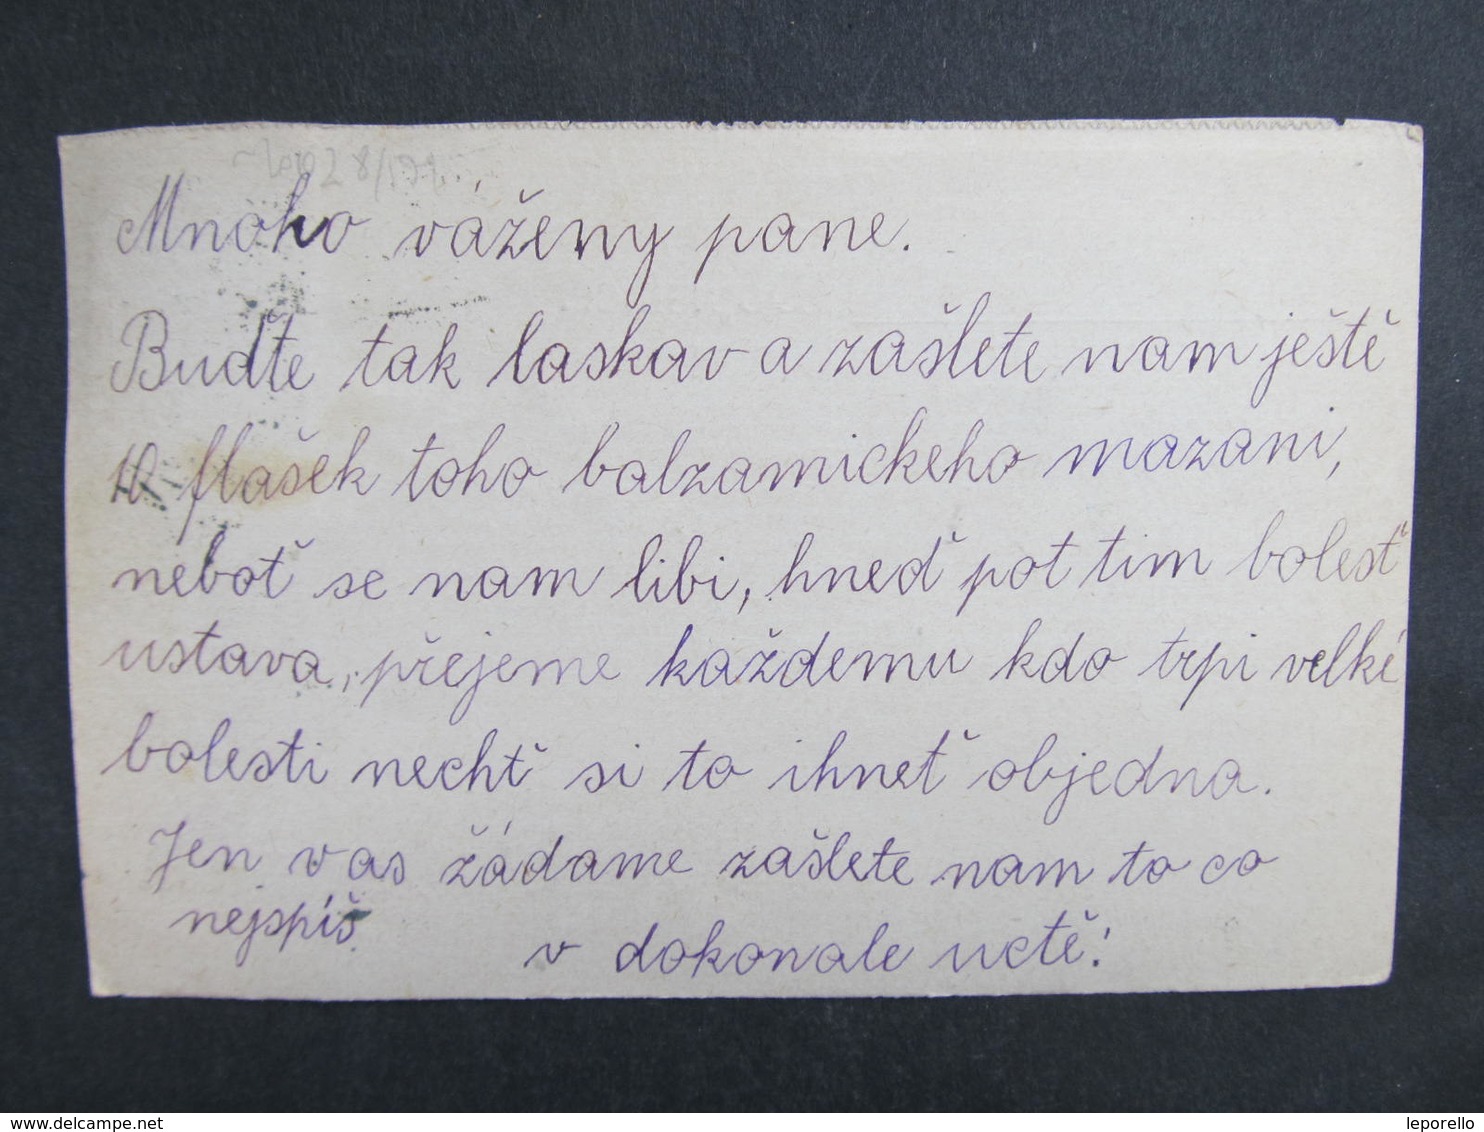 Mnoho váženy pane.
Buďte tak laskav a zašlete nam ještě
10 flašek toho balzamickeho mazani,
neboť se nam libi, hneď pot tim bolesť
ustava, přejeme každemu kdo trpi velké
bolesti nechť si to ihneť objedna.
Jen vas žádame zašlete nam to co
nejspíš.
v dokonale uctě!
delcampe.net
leporello